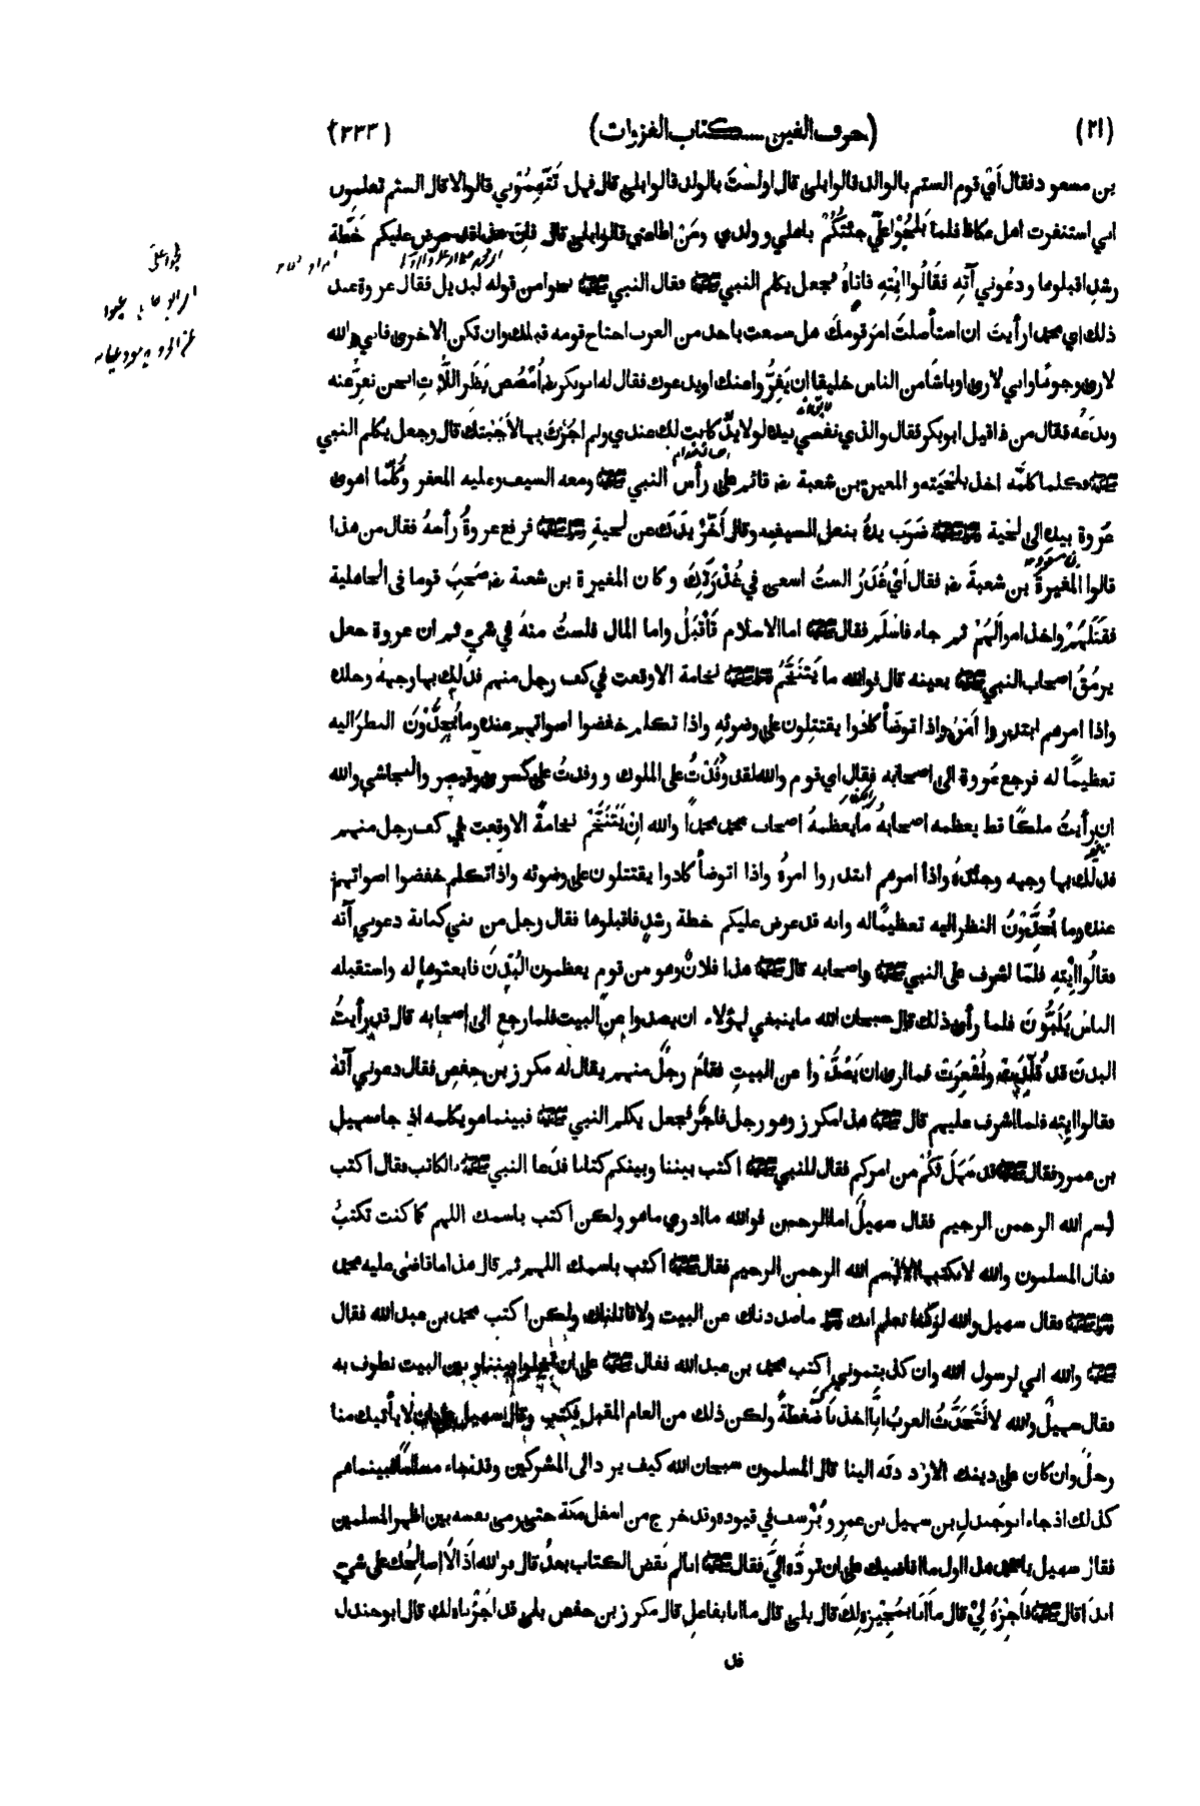 (٢١) (حرف الغين ــــ كتاب الغزوات) (٢٣٣)
بن مسعود فقال أَيْ قوم الستم بالوالد قالوا بلى قال اولستَ بالولد قالوا بلى قال فهل تَتَّهِمُوْني قالوا لا قال الستم تعلمون
اني استنفرت اهل عكاظ فلما بَلَّحُوْا عَلَيَّ جئتكُمْ باهلي و ولدي ومَنْ اطاعني قالوا بلى قال فان هذا قد عرض عليكم خطَّة
رشدٍ اقبلوها ودعُوني آتِهِ فقَالُوا ايْتِهِ فاتاهُ فجعل يكلم النبي ﷺ فقال النبي ﷺ نحوا من قوله لبديل فقال عروة عند
ذلك اي محمد ارأيتَ ان استأصلتَ امرَ قومكَ هل سمعت باحد من العرب اجتاح قومه قبلك وان تكن الاخرى فاني والله
لارى وجوهًا واني لارى اوباشًا من الناس خليقا ان يَفِرُّوا عنك او يدعوك فقال له ابوبكر رض اُمْصُصْ بَظْرَ اللَّاتِ انحن نفرُّ عنه
وندَعُه فقال من ذا قيل ابوبكر فقال والذي نفسي بيده لولا يدٌ كانت لك عندي ولم اجْزِكَ بها لاَجَبْتكَ قال وجعل يكلم النبي
ﷺ فكلما كلَّمه اخذ بلحْيَته و المغيرة بن شعبة رض قائم على رأس النبي ﷺ ومعه السيف وعليه المغفر وكُلَّما اهوى
عُروة بيده الى لحْية ﷺ ضرَب يدهُ بنعل السيف وقال أَخِّرْ يدَكَ عن لحيةِ ﷺ فرفع عروةُ رأسهُ فقال من هذا
قالوا المُغيرةُ بن شعبةَ رض فقال أَيْ غُدَرُ الستُ اسعى في غُدْرَتِكَ وكان المغيرة بن شعبة رض صَحِبَ قوما في الجاهلية
فقَتَلَهُمْ واخذ اموالَهُمْ ثم جاء فاسْلَم فقال ﷺ اما الاسلام فَأَقْبَلُ واما المال فلستُ منهُ في شيءٍ ثم ان عروة جعل
يرمُقُ اصحاب النبي ﷺ بعينه قال فوالله ما يَتَنَخَّمُ ﷺ نخامة الا وقعت في كف رجل منهم فدَلكَ بها وجههُ وجلدهُ
واذا امرهم ابتدروا اَمرَهُ واذا توضَأ كادُوا يقتتِلون على وضوئِهِ واذا تكلم خفضوا اصواتهم عنده وما يُحِدُّوْنَ النظر اليه
تعظيمًا له فرجع عُروة الى اصحابه فقال اي قوم والله لقد وَفَدْتُ على الملوك ووفدتُ على كسرى وقيصر والنجاشي والله
ان رأيتُ ملكًا قط يعظمه اصحابهُ ما يعظمهُ اصحاب محمد محمدًا والله ان يَتَنَخَّمْ نخامةً الا وقعت في كف رجل منهم
فدلكَ بها وجهه وجلدَهُ واذا امرهم ابتدروا امرهُ واذا اتوضأ كادوا يقتتلون على وضوئه واذا تكلم خفضوا اصواتهم
عنده وما يُحِدُّوْنَ النظر اليه تعظيمًا له وانه قد عرض عليكم خطة رشدٍ فاقبلوها فقال رجل من بني كنانة دعوني آتهِ
فقالُوا ايْتِهِ فلمَّا اشرف على النبي ﷺ واصحابه قال ﷺ هذا فلانٌ وهو من قوم يعظمون البُدْنَ فابعثوها له واستقبله
الناسُ يَلَبُّونَ فلما رأى ذلك قال سبحان الله ما ينبغي لهؤلاء ان يصدوا عن البيت فلما رجع الى اصحابه قال قد رأيتُ
البدنَ قد قُلِّدَتْ واُشْعِرَتْ فما ارى ان يَصُدُّوْا عن البيتِ فقامَ رجُلٌ منهم يقال له مكرز بن حفص فقال دعوني آتهِ
فقالوا ايته فلما اشرف عليهم قال ﷺ هذا مكرز وهو رجل فاجرٌ فجعل يكلم النبي ﷺ فبينما هو يكلمه اذ جاء سهيل
بن عمرو فقال ﷺ قد سَهَلَ لكُمْ من امركم فقال للنبي ﷺ اكتب بيننا وبينكم كتابا فدَعا النبي ﷺ الكاتب فقال اكتب
بسم الله الرحمن الرحيم فقال سهيلٌ اما الرحمن فوالله ما ادري ما هو ولكن اكتب باسمك اللهم كما كنت تكتبُ
فقال المسلمون والله لا نكتبها الا بسم الله الرحمن الرحيم فقال ﷺ اكتب باسمك اللهم ثم قال هذا ما قاضى عليه محمد
ﷺ فقال سهيل والله لو كنا نعلم انك ما صددناك عن البيت ولا قاتلناك ولكن اكتب محمد بن عبد الله فقال
ﷺ والله اني لرسول الله وان كذبتموني اكتب محمد بن عبد الله فقال ﷺ على ان تخلوا بيننا وبين البيت نطوف به
فقال سهيلٌ والله لا تَتَحَدَّثُ العربُ انَّا اخذنَا ضُغْطَةً ولكن ذلك من العام المقبل فكتب وقال سهيل لا يأتيك منا
رجلٌ وان كان على دينك الا رددتَه الينا قال المسلمون سبحان الله كيف يرد الى المشركين وقد جاء مسلمًا فبينما هم
كذلك اذ جاء ابو جندل بن سهيل بن عمرو يُرْسفِ في قيوده وقد خرج من اسفل مكة حتى رمى بنفسه بين اظهر المسلمين
فقال سهيل يا محمد هذا اول ما اقاضيك على ان تردَّه الَيَّ فقال ﷺ انا لم نقض الكتاب بعدُ قال فوالله اذًا لا اصالحُك على شيءٍ
ابدًا قال ﷺ فاَجِزْهُ لِيْ قال ما اَنا بمُجِيْزه لكَ قال بلى قال ما انا بفاعلٍ قال مكرز بن حفص بلى قد اجَزْناه لك قال ابو جندل